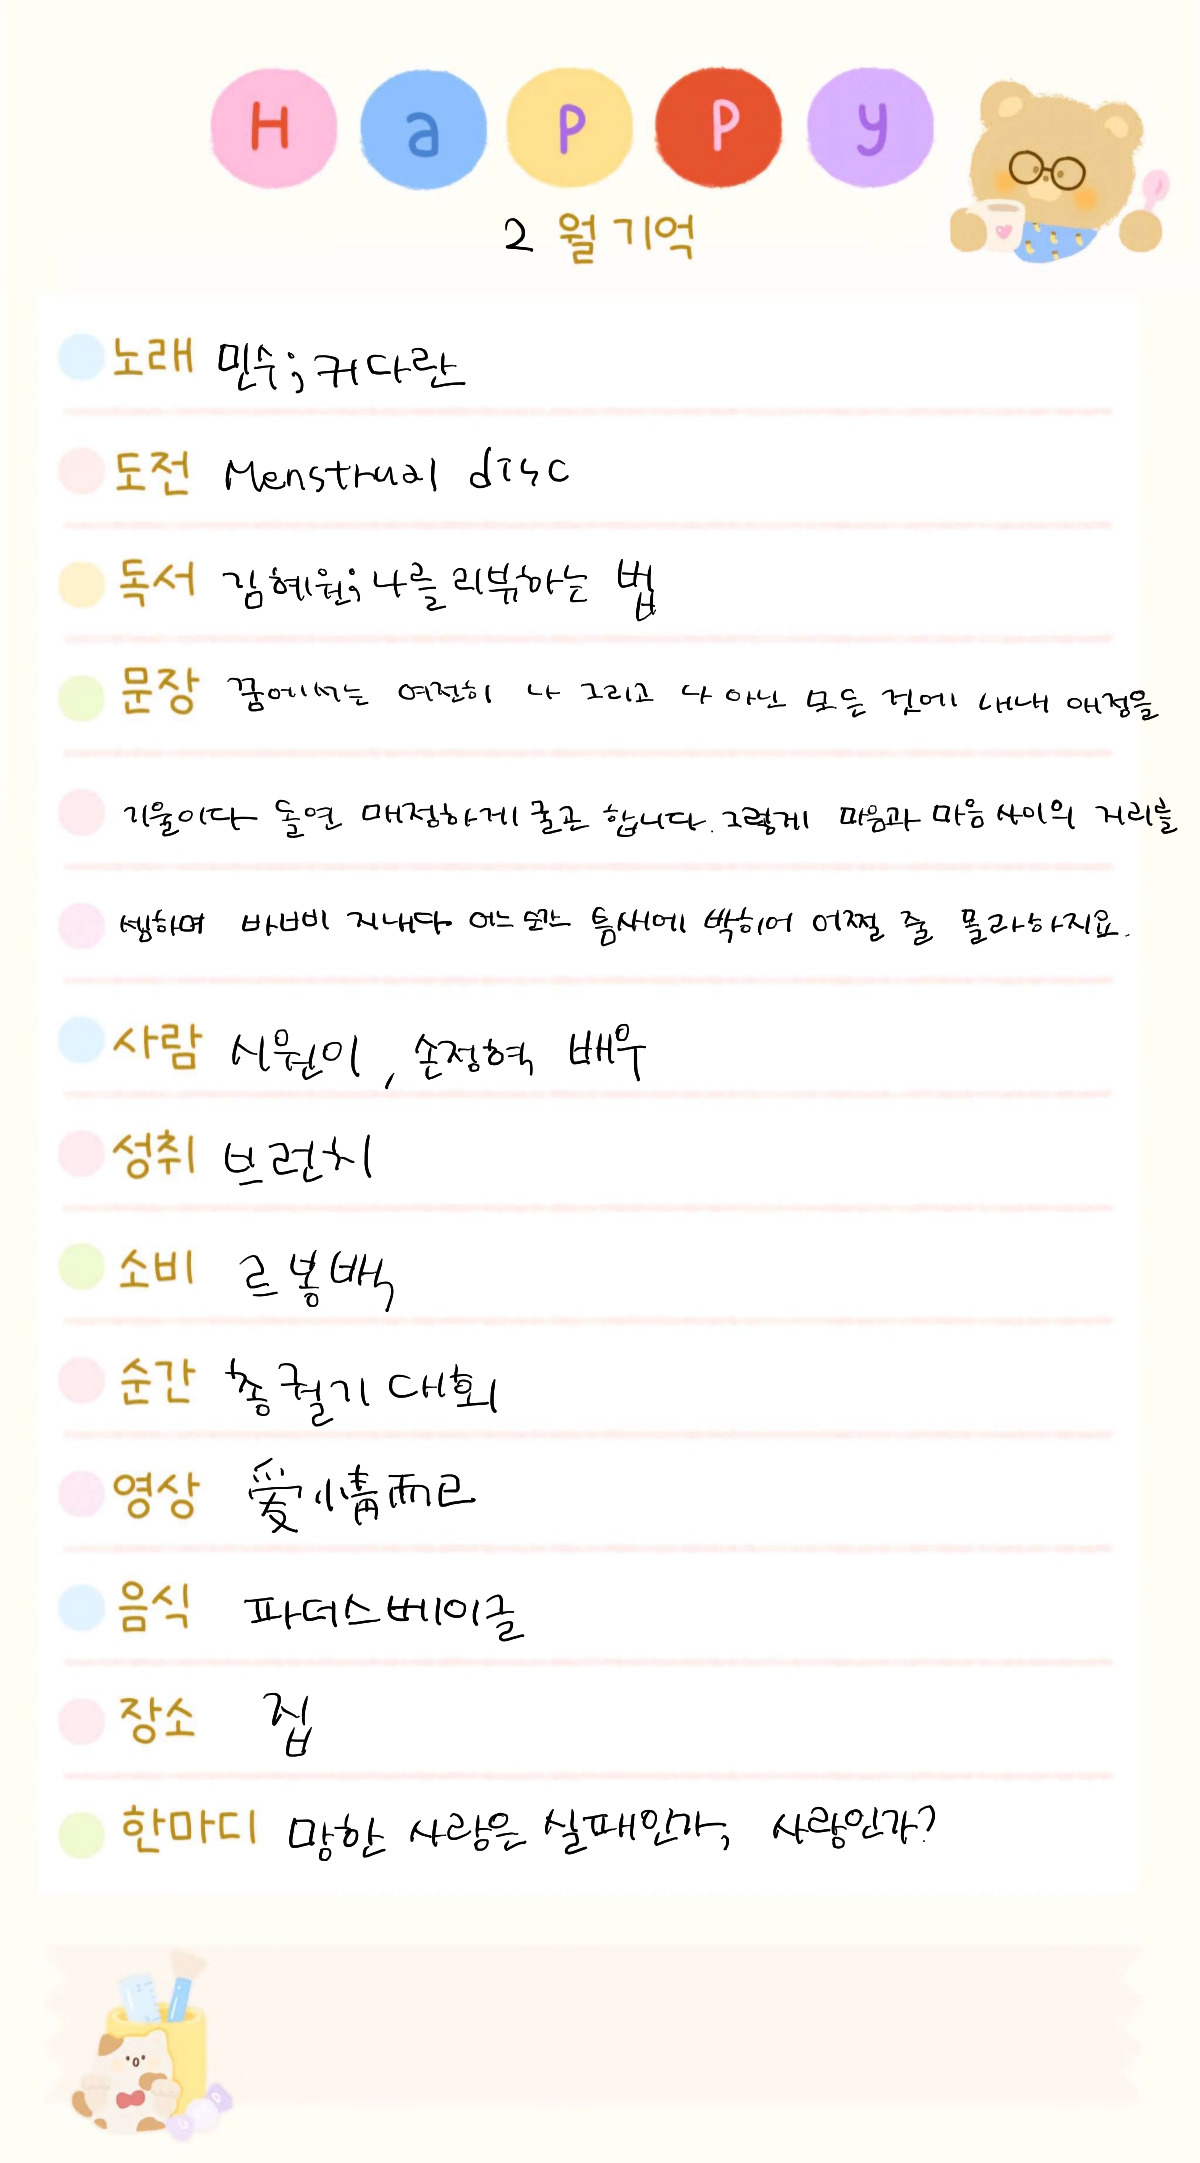 Happy
2 월 기억
노래 민수; 커다란
도전 Menstrual disc
독서 김혜원; 나를 리뷰하는 법
문장 꿈에서는 여전히 나 그리고 나 아닌 모든 것에 내내 애정을
기울이다 돌연 매정하게 굴곤 합니다. 그렇게 마음과 마음 사이의 거리를
셈하며 바삐 지내다 어느 틈새에 박히어 어쩔 줄 몰라하지요.
사람 시원이, 손정혁 배우
성취 브런치
소비 르봉백
순간 총궐기 대회
영상 愛情而已
음식 파더스베이글
장소 집
한마디 망한 사랑은 실패인가, 사랑인가?